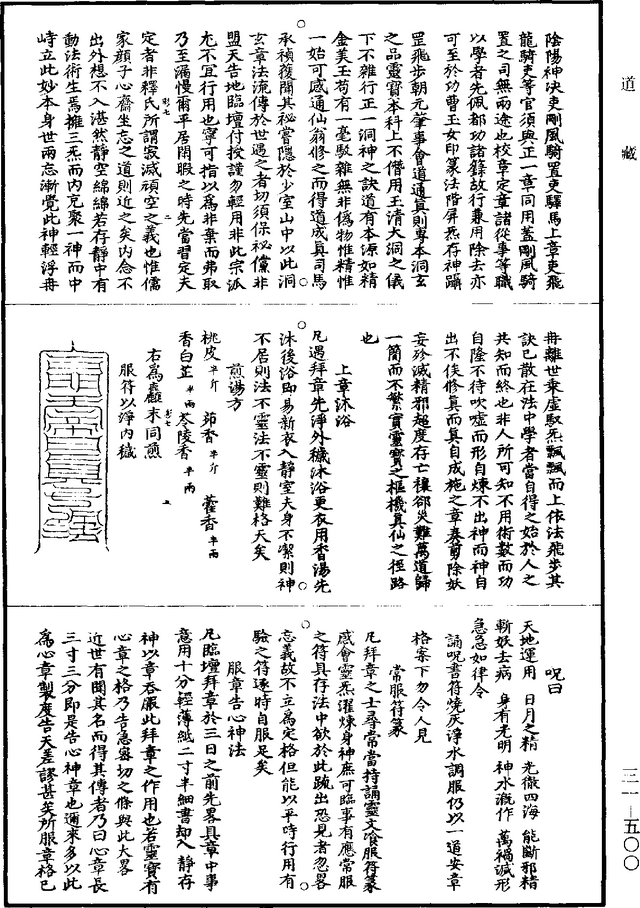 道藏
陰陽神決吏剛風騎置吏驛馬上章吏飛
龍騎吏等官須與正一章同用蓋剛風騎
置之司無兩途也校章定章諸從事等職
以學者先佩都功諸籙故行兼用除去亦
可至於功曹玉女印篆法階屏炁存神躡
罡飛步朝元肇事會道通真則專本洞玄
之品靈寶本科上不僭用玉清大洞之儀
下不雜行正一洞神之訣道有本源如精
金美玉苟有一毫駁雜無非偽物惟精惟
一始可感通仙翁修之而得道成真司馬
承禎復闡其祕嘗隱於少室山中以此洞
玄章法流傳於世遇之者切須保祕儻非
盟天告地臨壇付授謹勿輕用非此宗派
尤不宜行用也寧可指以為非棄而弗取
乃至漏慢爾平居閑暇之時先當習定夫
定者非釋氏所謂寂滅頑空之義也惟儒
家顏子心齋坐忘之道則近之矣内念不
出外想不入湛然靜空綿綿若存靜中有
動法術生焉擁三炁而内克聚一神而中
峙立此妙本身世兩忘漸覺此神輕浮毋
毋離世乘虛馭炁飄飄而上依法飛步其
訣已散在法中學者當自得之始於人之
共知而終也非人所可知不用術數而功
自隆不待吹噓而形自煉不出神而神自
出不俟修真而真自成施之章奏剪除妖
妄殄滅精邪超度存亡禳卻災難萬道歸
一簡而不繁實靈寶之樞機真仙之徑路
也
上章沐浴
凡遇拜章先淨外穢沐浴更衣用香湯先
沐後浴即易新衣入靜室夫身不潔則神
不居則法不靈法不靈則難格天矣
煎湯方
桃皮半斤 茆香半斤 藿香半兩
香白芷半兩 苓陵香半兩
右為麤末同煎
服符以淨内穢
呪曰
天地運用 日月之精 光徹四海 能斷邪精
斬妖去病 身有光明 神水溉作 萬禍滅形
急急如律令
誦呪書符燒灰淨水調服仍以一道安章
格案下勿令人見
常服符篆
凡拜章之士尋常當持誦靈文飡服符篆
感會靈炁濯煉身神庶可臨事有應常服
之符具存法中欲於此疏出恐見者忽畧
忘義故不立為定格但能以平時行用有
驗之符逐時自服足矣
服章告心神法
凡臨壇拜章於三日之前先畧具章中事
意用十分輕薄紙二寸半細書却入靜存
神以章吞服此拜章之作用也若靈寶有
心章之格乃告急密切之條與此大畧
近世有聞其名而得其傳者乃曰心章長
三寸三分即是告心神章也邇來多以此
為心章製度告天差謬甚矣所服章格已
三一—五〇〇